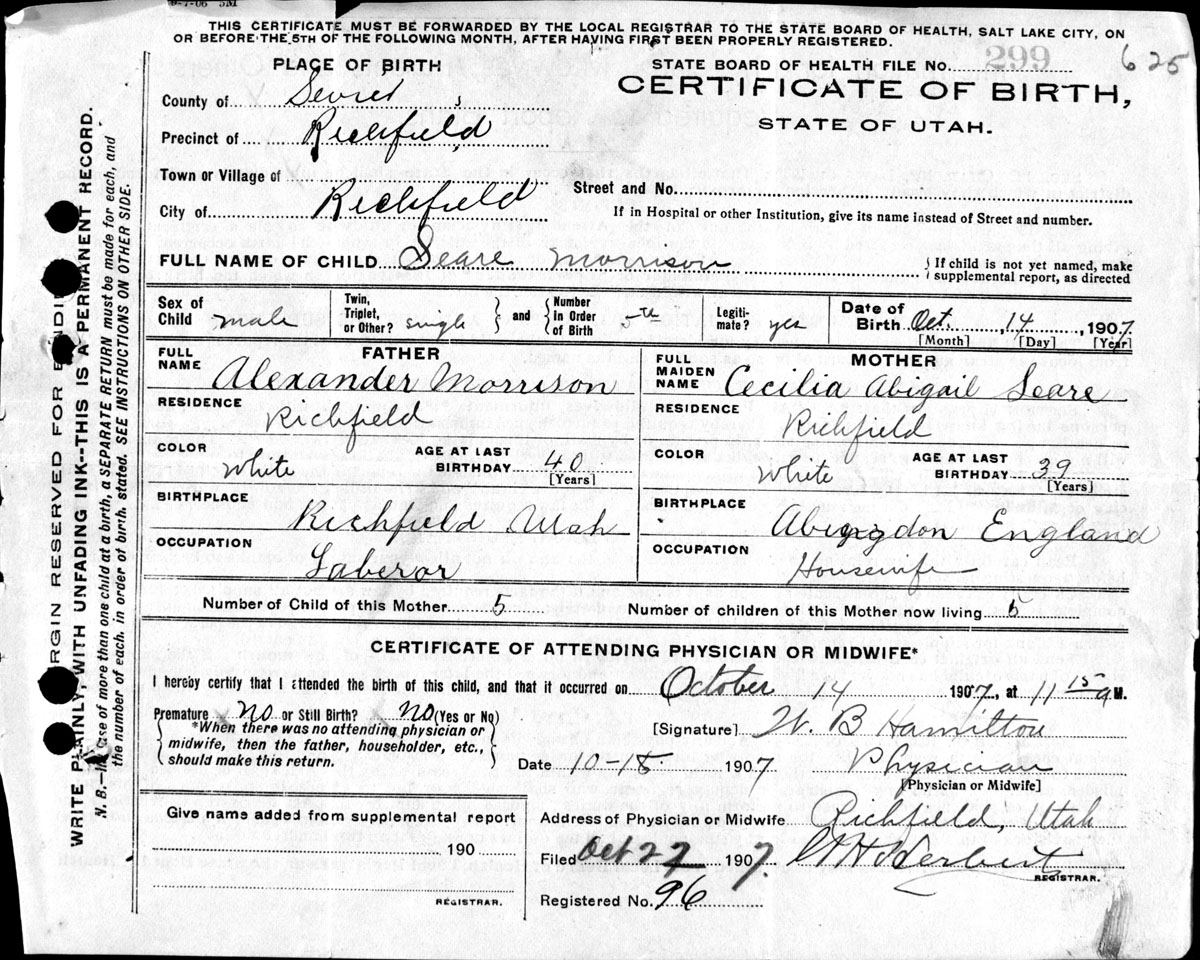 9-7-06 5M
THIS CERTIFICATE MUST BE FORWARDED BY THE LOCAL REGISTRAR TO THE STATE BOARD OF HEALTH, SALT LAKE CITY, ON
OR BEFORE THE 5TH OF THE FOLLOWING MONTH, AFTER HAVING FIRST BEEN PROPERLY REGISTERED.
PLACE OF BIRTH
STATE BOARD OF HEALTH FILE No. 299 625
County of Sevier
CERTIFICATE OF BIRTH,
STATE OF UTAH.
Precinct of Richfield
Town or Village of
Street and No.
City of Richfield
If in Hospital or other Institution, give its name instead of Street and number.
FULL NAME OF CHILD Seare Morrison
{ If child is not yet named, make
supplemental report, as directed
Sex of Child male
Twin, Triplet, or Other? single } and { Number in Order of Birth 5th
Legiti-mate? yes
Date of Birth Oct. 14, 1907
[Month] [Day] [Year]
FATHER
FULL NAME Alexander Morrison
MOTHER
FULL MAIDEN NAME Cecilia Abigail Seare
RESIDENCE Richfield
RESIDENCE Richfield
COLOR White AGE AT LAST BIRTHDAY 40 [Years]
COLOR White AGE AT LAST BIRTHDAY 39 [Years]
BIRTHPLACE Richfield Utah
BIRTHPLACE Abingdon England
OCCUPATION Laberor
OCCUPATION Housewife
Number of Child of this Mother 5 Number of children of this Mother now living 5
CERTIFICATE OF ATTENDING PHYSICIAN OR MIDWIFE*
I hereby certify that I attended the birth of this child, and that it occurred on October 14 1907, at 11 15 a M.
Premature no or Still Birth? no (Yes or No)
{ *When there was no attending physician or
midwife, then the father, householder, etc.,
should make this return. }
[Signature] W. B Hamilton
Date 10-15 1907 Physician
[Physician or Midwife]
Give name added from supplemental report
190
REGISTRAR.
Address of Physician or Midwife Richfield, Utah
Filed Oct 27 1907.
REGISTRAR.
Registered No. 96
MARGIN RESERVED FOR BINDING
WRITE PLAINLY, WITH UNFADING INK--THIS IS A PERMANENT RECORD.
N. B.--In case of more than one child at a birth, a SEPARATE RETURN must be made for each, and
the number of each, in order of birth, stated. SEE INSTRUCTIONS ON OTHER SIDE.